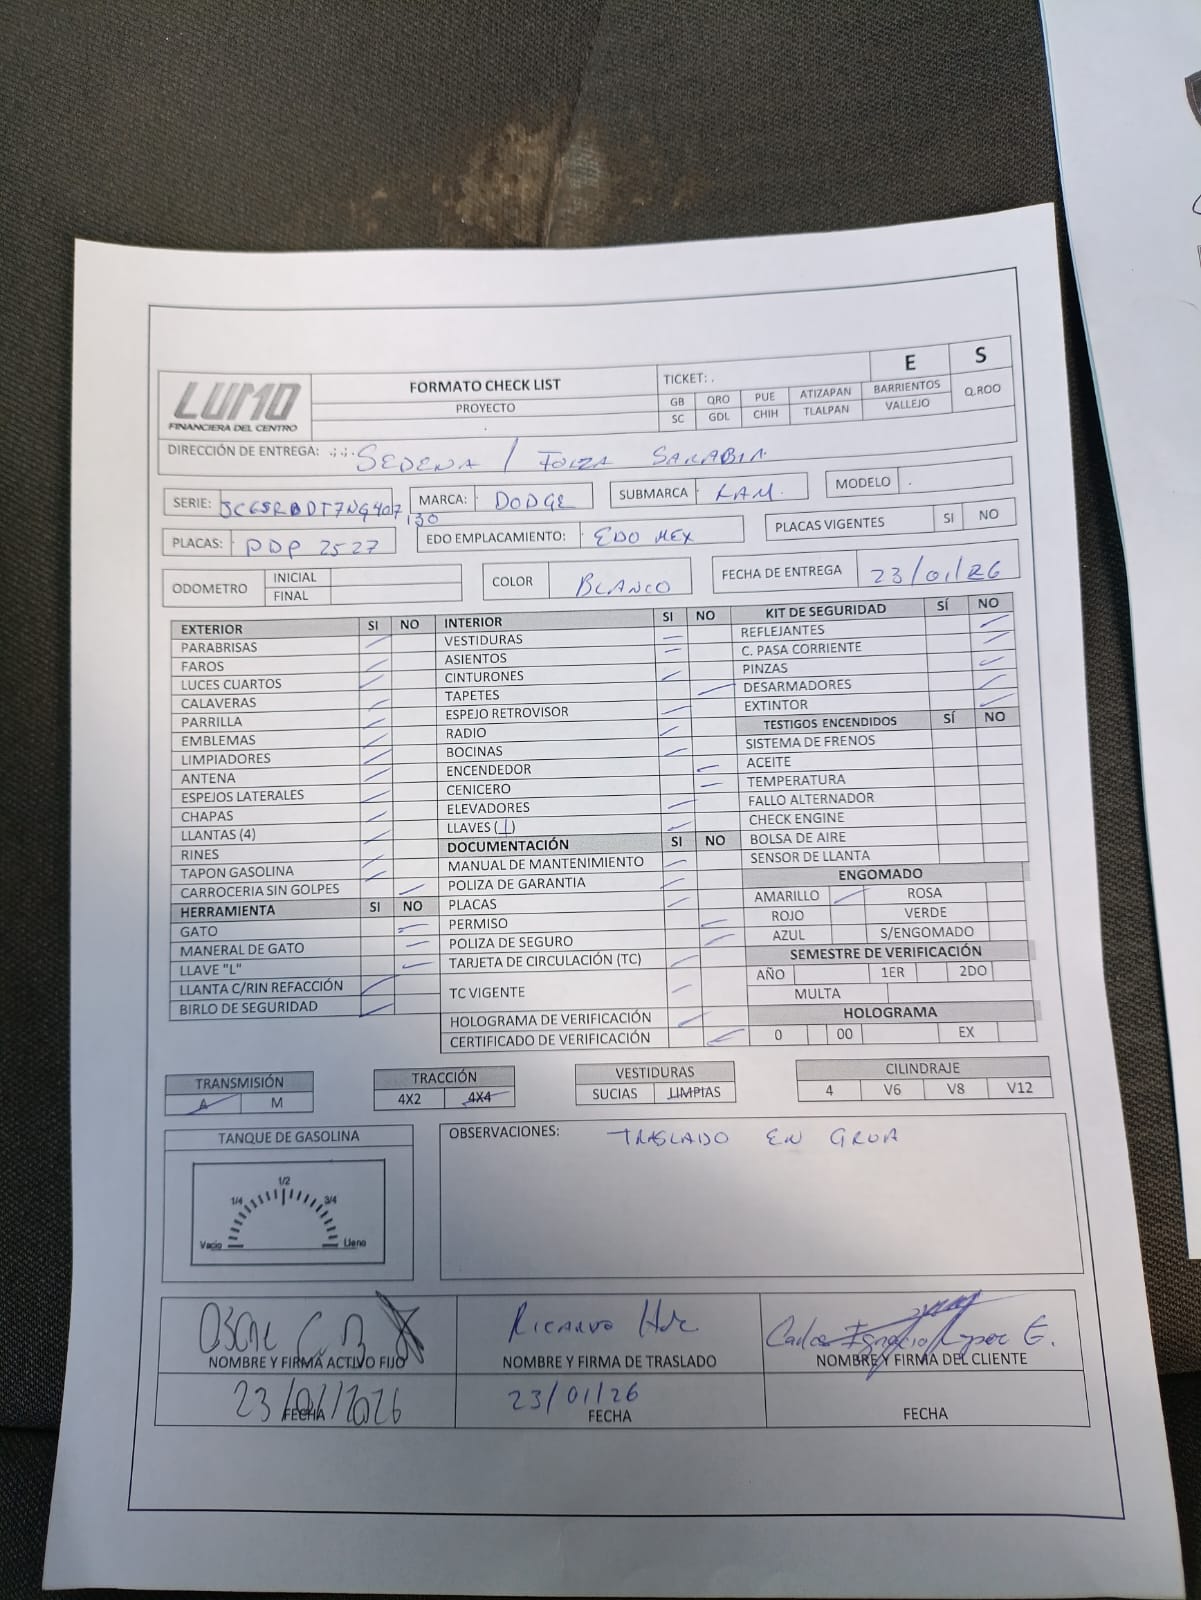 LUMO
FINANCIERA DEL CENTRO
FORMATO CHECK LIST
PROYECTO
TICKET: .
E
S
GB QRO PUE ATIZAPAN BARRIENTOS Q.ROO
SC GDL CHIH TLALPAN VALLEJO
DIRECCIÓN DE ENTREGA: SEDENA / FULZA SARABIA
SERIE:
MARCA: DODGE
SUBMARCA RAM.
MODELO .
PLACAS: PDP 2527
EDO EMPLACAMIENTO: EDO MEX
PLACAS VIGENTES SI NO
ODOMETRO INICIAL
FINAL
COLOR BLANCO
FECHA DE ENTREGA 23/01/26
EXTERIOR SI NO
PARABRISAS
FAROS
LUCES CUARTOS
CALAVERAS
PARRILLA
EMBLEMAS
LIMPIADORES
ANTENA
ESPEJOS LATERALES
CHAPAS
LLANTAS (4)
RINES
TAPON GASOLINA
CARROCERIA SIN GOLPES
HERRAMIENTA SI NO
GATO
MANERAL DE GATO
LLAVE "L"
LLANTA C/RIN REFACCIÓN
BIRLO DE SEGURIDAD
INTERIOR SI NO
VESTIDURAS
ASIENTOS
CINTURONES
TAPETES
ESPEJO RETROVISOR
RADIO
BOCINAS
ENCENDEDOR
CENICERO
ELEVADORES
LLAVES (1)
DOCUMENTACIÓN SI NO
MANUAL DE MANTENIMIENTO
POLIZA DE GARANTIA
PLACAS
PERMISO
POLIZA DE SEGURO
TARJETA DE CIRCULACIÓN (TC)
TC VIGENTE
HOLOGRAMA DE VERIFICACIÓN
CERTIFICADO DE VERIFICACIÓN
KIT DE SEGURIDAD SÍ NO
REFLEJANTES
C. PASA CORRIENTE
PINZAS
DESARMADORES
EXTINTOR
TESTIGOS ENCENDIDOS SÍ NO
SISTEMA DE FRENOS
ACEITE
TEMPERATURA
FALLO ALTERNADOR
CHECK ENGINE
BOLSA DE AIRE
SENSOR DE LLANTA
ENGOMADO
AMARILLO ROSA
ROJO VERDE
AZUL S/ENGOMADO
SEMESTRE DE VERIFICACIÓN
AÑO 1ER 2DO
MULTA
HOLOGRAMA
0 00 EX
TRANSMISIÓN
A M
TRACCIÓN
4X2 4X4
VESTIDURAS
SUCIAS LIMPIAS
CILINDRAJE
4 V6 V8 V12
TANQUE DE GASOLINA
1/2
1/4 3/4
Vacio Lleno
OBSERVACIONES: TRASLADO EN GRUA
NOMBRE Y FIRMA ACTIVO FIJO
23/01/2026
FECHA
Ricardo
NOMBRE Y FIRMA DE TRASLADO
23/01/26
FECHA
Carlos Ignacio Lopez G.
NOMBRE Y FIRMA DEL CLIENTE
FECHA